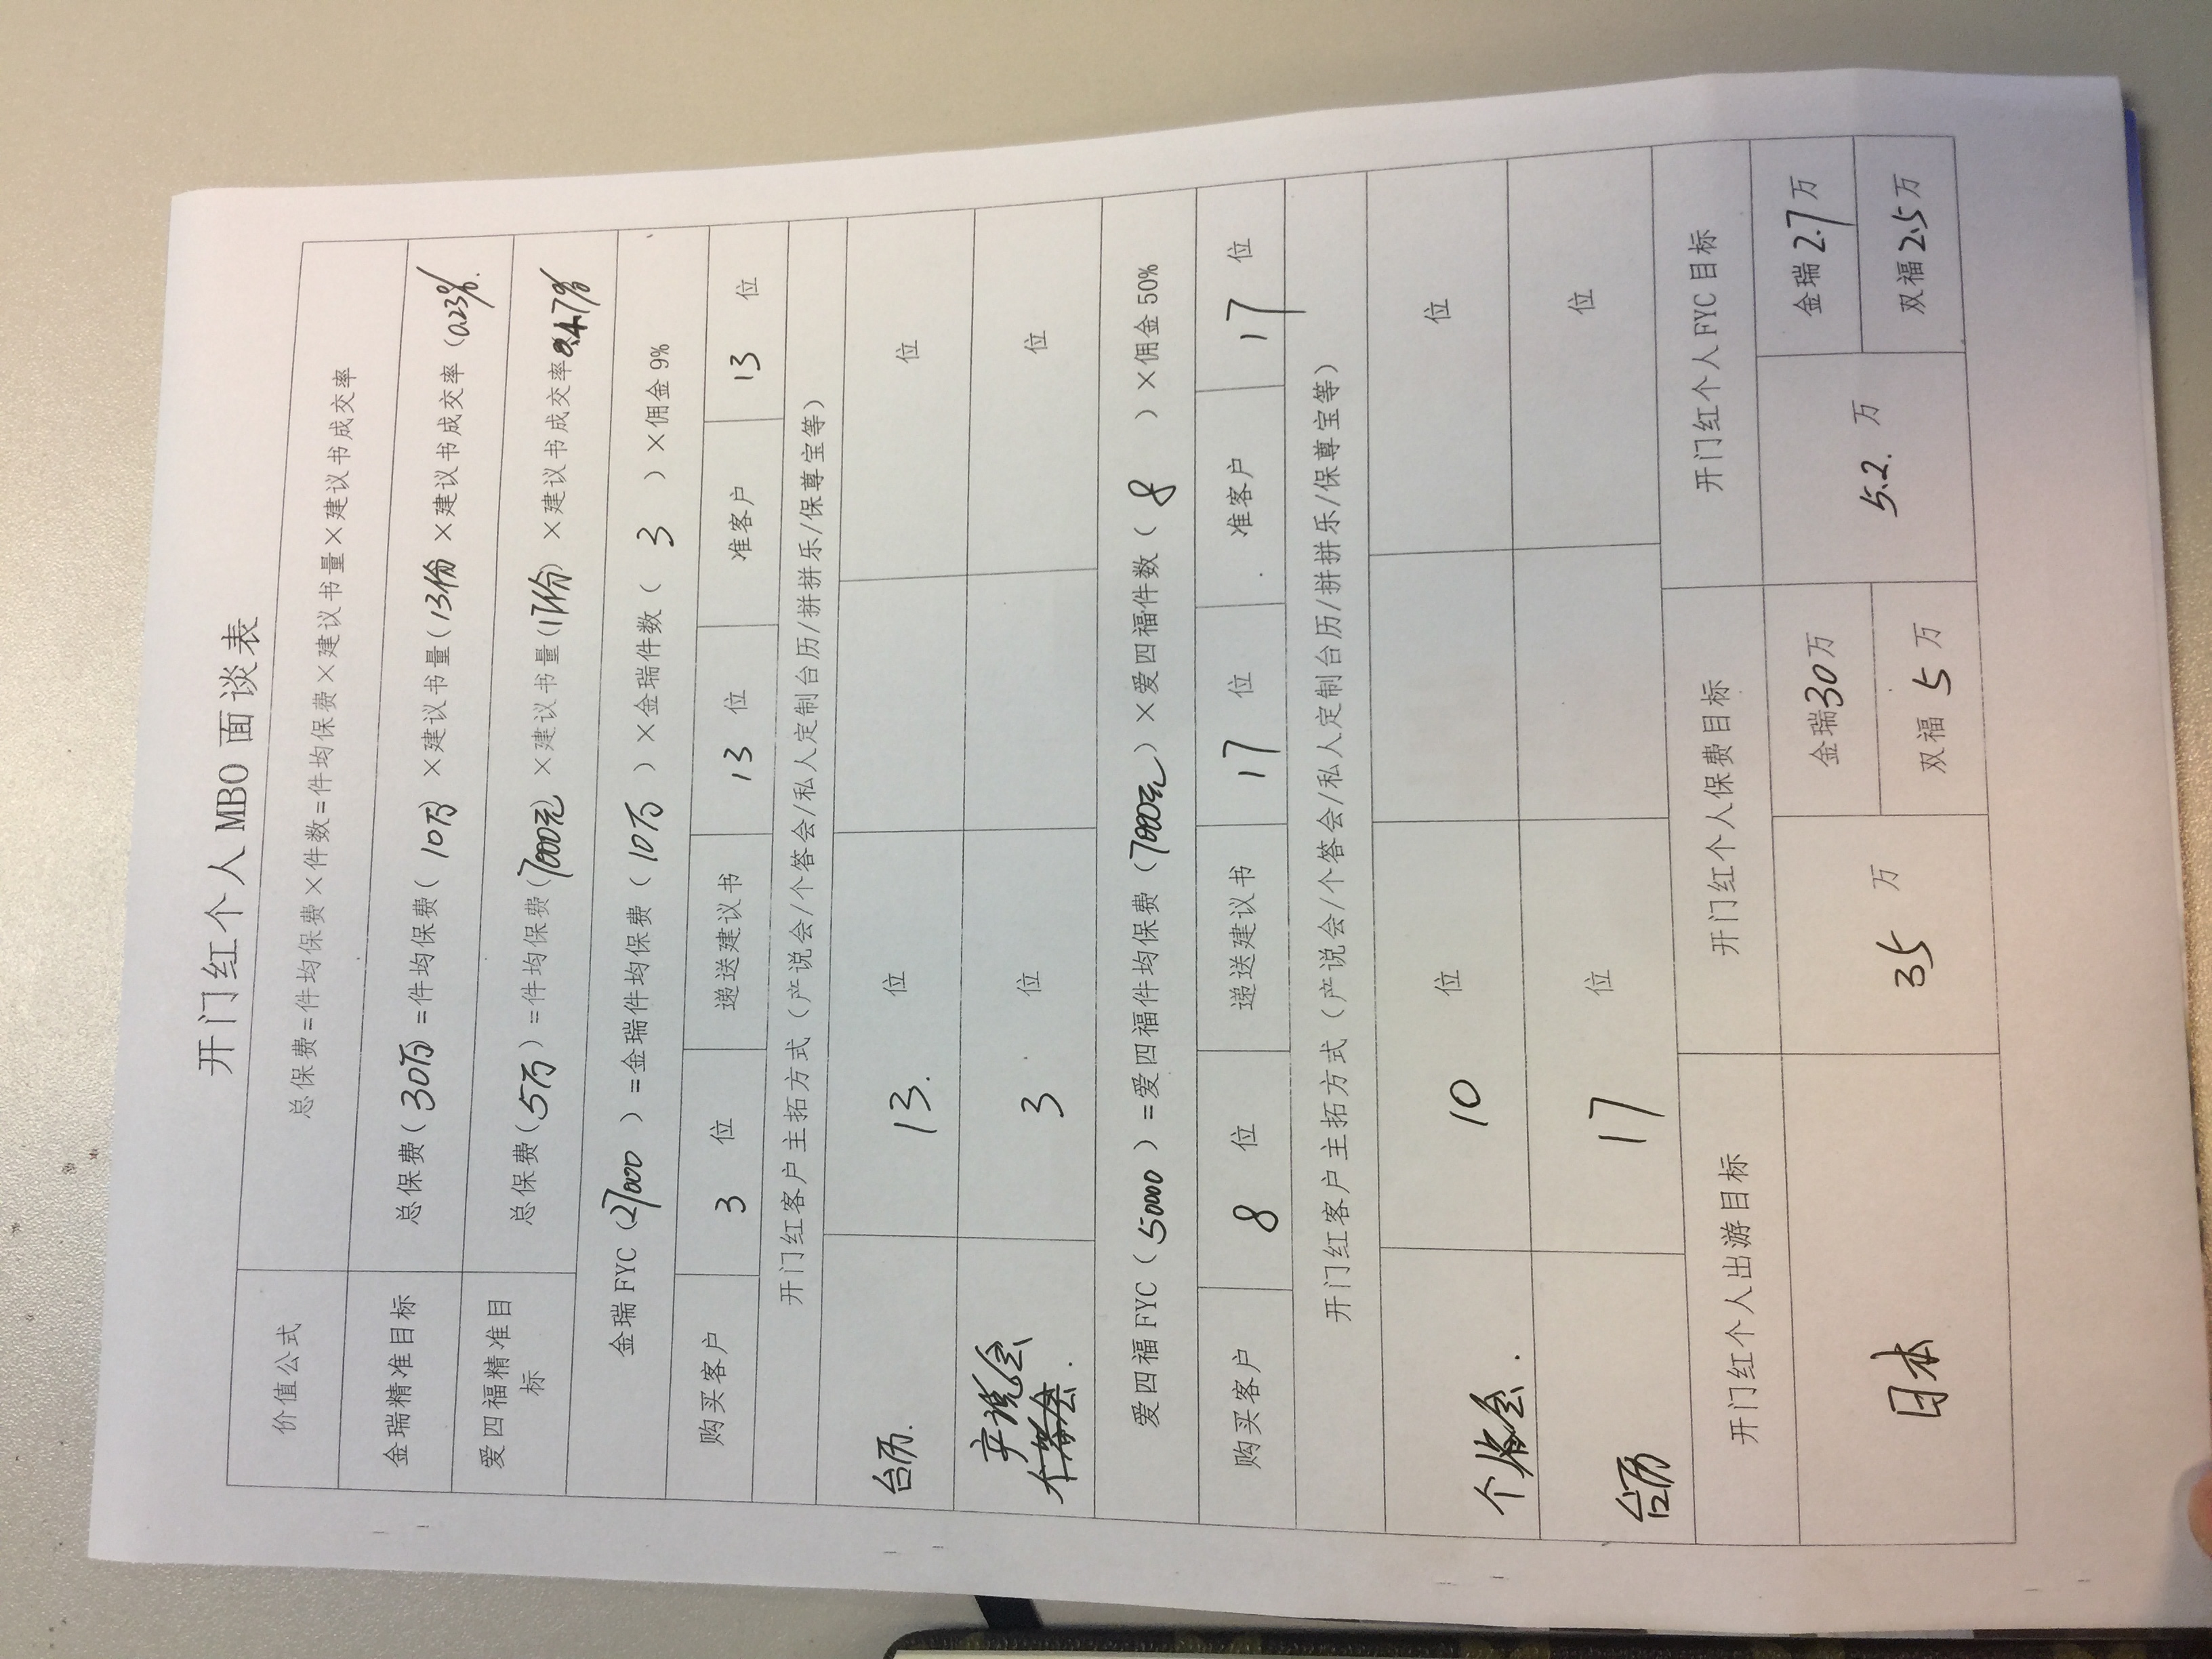 开门红个人MBO面谈表
价值公式 总保费=件均保费×件数=件均保费×建议书量×建议书成交率
金瑞精准目标 总保费(30万)=件均保费(10万)×建议书量(13份×建议书成交率(0.23%.
爱四福精准目标 总保费(5万)=件均保费(7000元×建议书量(17份)×建议书成交率0.47%
金瑞FYC(27000)=金瑞件均保费(10万)×金瑞件数(3)×佣金9%
购买客户 3 位 递送建议书 13 位 准客户 13 位
开门红客户主拓方式(产说会/个答会/私人定制台历/拼拼乐/保尊宝等)
台历. 13. 位 位
产说会 3 位 位
爱四福FYC(50000)=爱四福件均保费(7000元)×爱四福件数(8)×佣金50%
购买客户 8 位 递送建议书 17 位 准客户 17 位
开门红客户主拓方式(产说会/个答会/私人定制台历/拼拼乐/保尊宝等)
个答会. 10 位 位
台历 17 位 位
开门红个人出游目标 开门红个人保费目标 开门红个人FYC目标
日本 35 万 金瑞30万 5.2. 万 金瑞2.7万
双福 5 万 双福2.5万